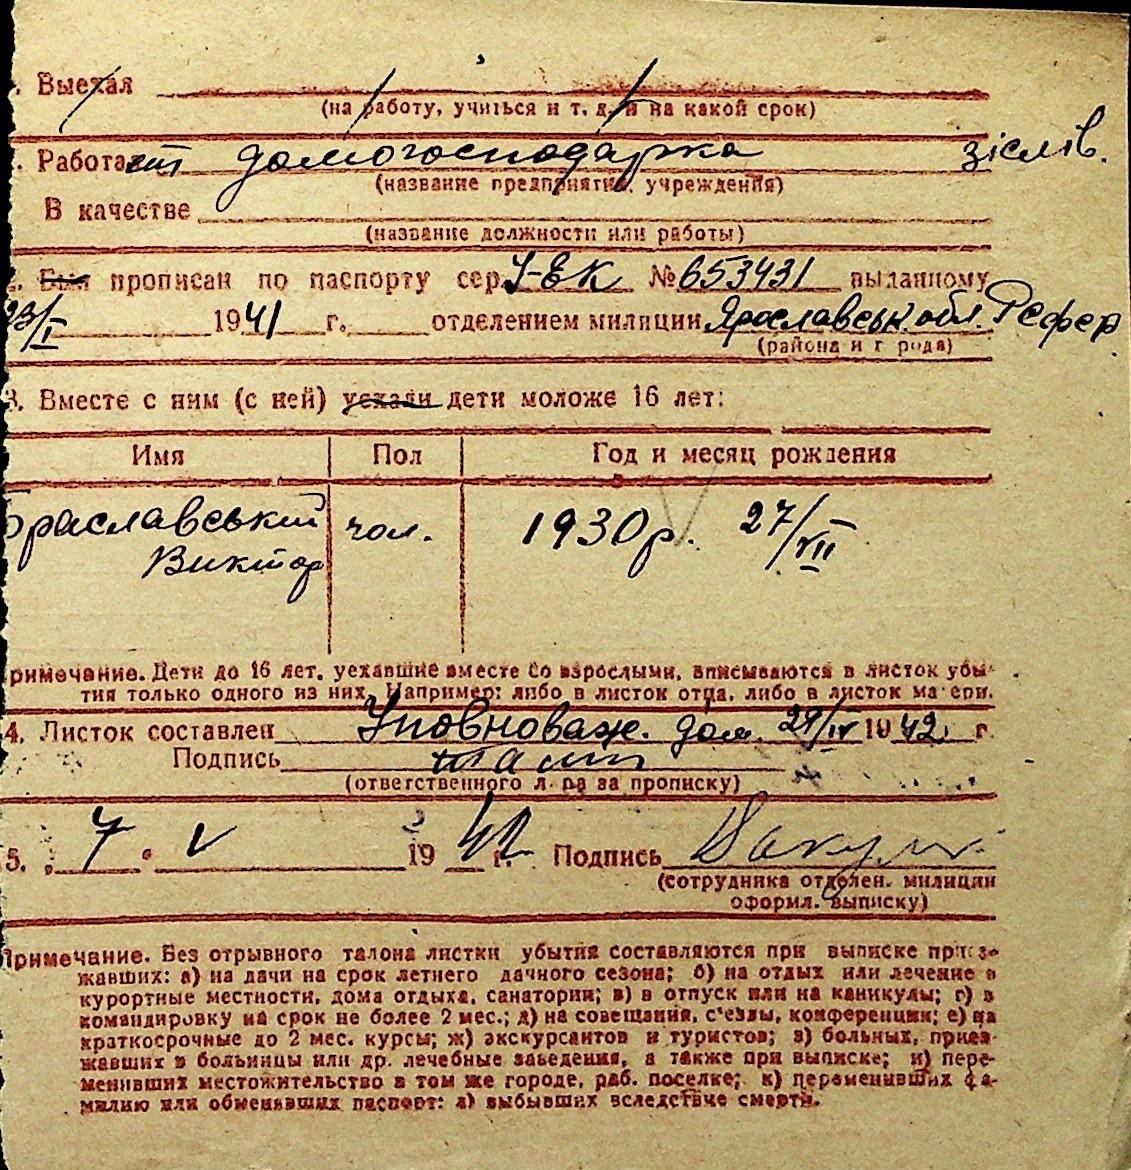 . Выехал
(на работу, учиться и т. д. и на какой срок)
. Работает домогосподарка зіслів.
(название предприятия, учреждения)
В качестве
(название должности или работы)
2. Был прописан по паспорту сер. У-ЕК № 653431 выданному
23/I 1941 г. отделением милиции Ярославськ. обл. Рефер
(района и города)
3. Вместе с ним (с ней) уехали дети моложе 16 лет:
Имя Пол Год и месяц рождения
Браславський чол. 1930 р. 27/VII
Виктор
римечание. Дети до 16 лет, уехавшие вместе со взрослыми, вписываются в листок убы-
тия только одного из них. Например: либо в листок отца, либо в листок матери.
4. Листок составлен Уповноваж. дом. 29/IV 1942 г.
Подпись
(ответственного л. ца за прописку)
5. 7 V 1942 г. Подпись
(сотрудника отделен. милиции
оформл. выписку)
Примечание. Без отрывного талона листки убытия составляются при выписке приез-
жавших: а) на дачи на срок летнего дачного сезона; б) на отдых или лечение в
курортные местности, дома отдыха, санатории; в) в отпуск или на каникулы; г) в
командировку на срок не более 2 мес.; д) на совещания, с'езды, конференции; е) на
краткосрочные до 2 мес. курсы; ж) экскурсантов и туристов; з) больных, приез-
жавших в больницы или др. лечебные заведения, а также при выписке; и) пере-
менивших местожительство в том же городе, раб. поселке; к) переменивших фа-
милию или обменявших паспорт: л) выбывших вследствие смерти.